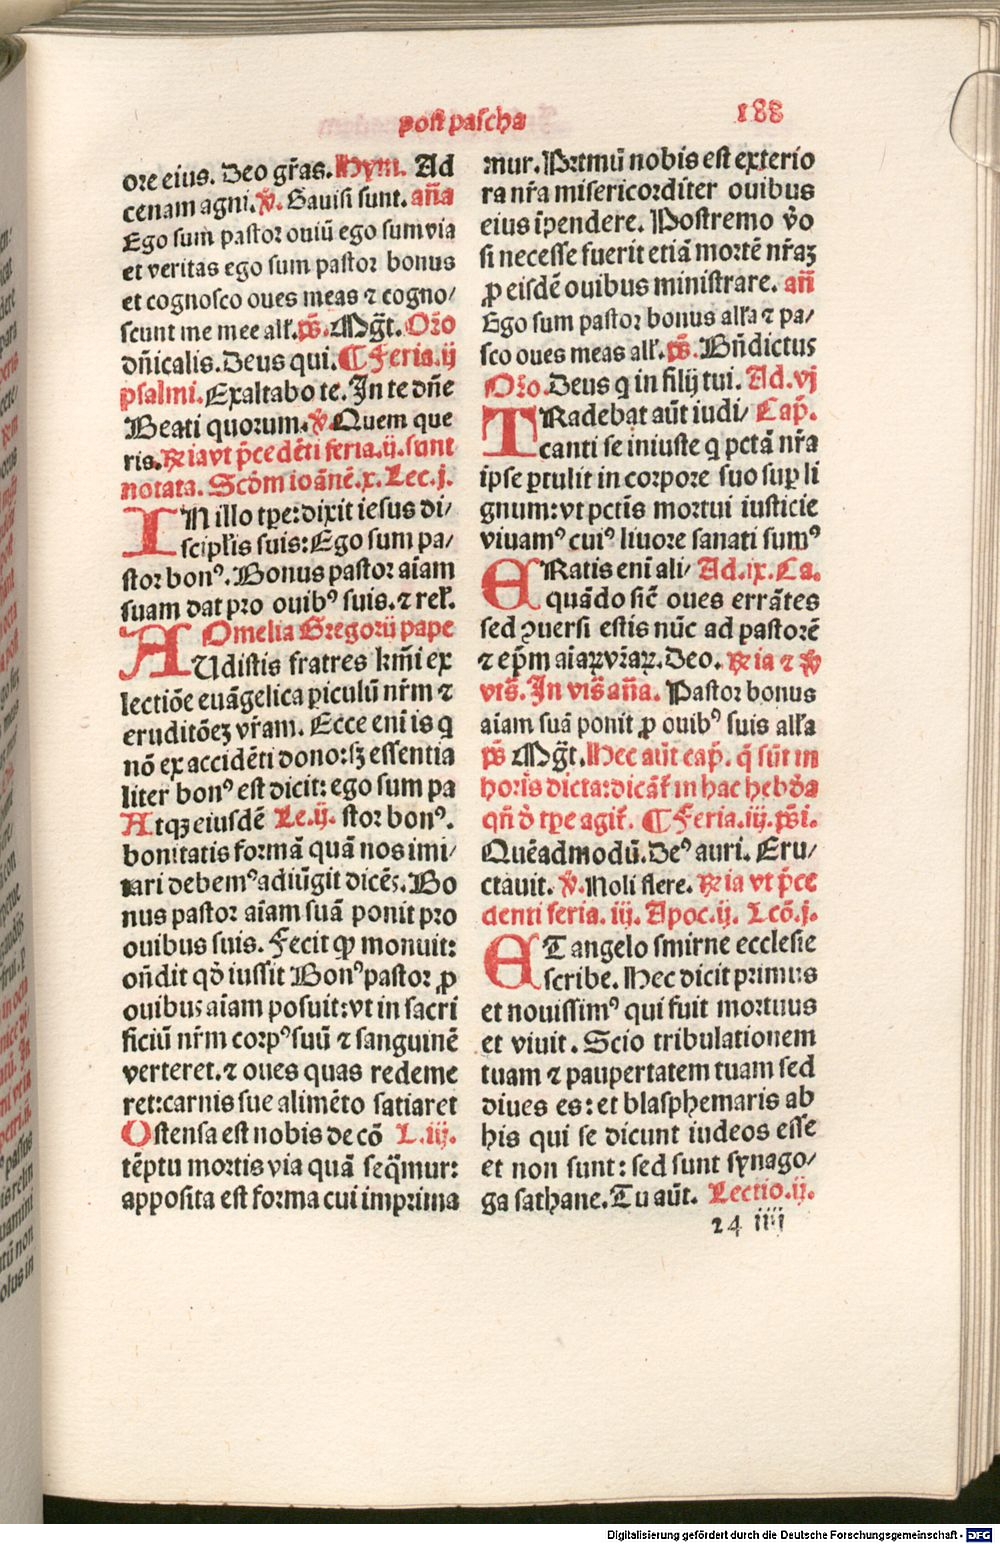 post pascha
188
ore eius. Deo gr̃as. Hym. Ad
cenam agni. ℣. Gauisi sunt. añа
Ego sum pastor ouiū ego sum via
et veritas ego sum pastor bonus
et cognosco oues meas ⁊ cogno/
scunt me mee all'. ps̄. Mg̃t. Or̃o
dñicalis. Deus qui. ¶ Feria.ij
psalmi. Exaltabo te. In te dñe
Beati quorum. ℣. Quem que
ris. ℞ia vt p̄cedēti feria.ij. sunt
notata. Scd̃m ioānē.x. Lec.j.
IN illo tpe: dixit iesus di/
scipl'is suis: Ego sum pa/
stor bonꝰ. Bonus pastor aīam
suam dat pro ouibꝰ suis. ⁊ rel'.
Omelia Gregorij pape
AUdistis fratres km̄i ex
lectiōe euāgelica piculū nr̄m ⁊
eruditōeꝫ vr̄am. Ecce enī is q
nō ex accidēti dono: sꝫ essentia
liter bonꝰ est dicit: ego sum pa
Atqꝫ eiusdē Le.ij. stor bonꝰ.
bonitatis formā quā nos imi/
tari debemꝰ adiūgit dicēs. Bo
nus pastor aīam suā ponit pro
ouibus suis. Fecit qꝫ monuit:
on̄dit qd̓ iussit Bonꝰ pastor ꝓ
ouibus aīam posuit: vt in sacri
ficiū nr̄m corpꝰ suū ⁊ sanguinē
verteret. ⁊ oues quas redeme
ret: carnis sue alimēto satiaret
Ostensa est nobis de cō L.iij.
tēptu mortis via quā seq̄mur:
apposita est forma cui imprima
mur. Primū nobis est exterio
ra nr̄a misericorditer ouibus
eius īpendere. Postremo v̓o
si necesse fuerit etiā mortē nr̄aꝫ
ꝓ eisdē ouibus ministrare. añ
Ego sum pastor bonus all'a ⁊ pa/
sco oues meas all'. ps̄. Bn̄dictus
Or̃o. Deus q in filij tui. Ad.vj
TRadebat aūt iudi/ Cap̄.
canti se iniuste q pctā nr̄a
ipse ꝑtulit in corpore suo suꝑ li
gnum: vt pctīs mortui iusticie
viuamꝰ cuiꝰ liuore sanati sumꝰ
ERatis enī ali/ Ad.ix. Ca.
quādo sic̄ oues errātes
sed ꝯuersi estis nūc ad pastorē
⁊ ep̄m aīaꝝ vr̄aꝝ. Deo. ℞ia ⁊ ℣
vts̄. In vīs añа. Pastor bonus
aīam suā ponit ꝓ ouibꝰ suis all'a
ps̄ Mg̃t. Hec aūt cap̄. q̄ sūt in
horīs dicta: dicāt̄ in hac hebd̓a
qn̄ d̓ tpe agit̄. ¶ Feria.iij. ps̄i.
Quēadmodū. Deꝰ auri. Eru/
ctauit. ℣. Noli flere. ℞ia vt p̄ce
denti feria.iij. Apoc.ij. Lcō.j.
ET angelo smirne ecclesie
scribe. Hec dicit primus
et nouissimꝰ qui fuit mortuus
et viuit. Scio tribulationem
tuam ⁊ paupertatem tuam sed
diues es: et blasphemaris ab
his qui se dicunt iudeos esse
et non sunt: sed sunt synago/
ga sathane. Tu aūt. Lectio.ij.
24 iiij
Digitalisierung gefördert durch die Deutsche Forschungsgemeinschaft - DFG